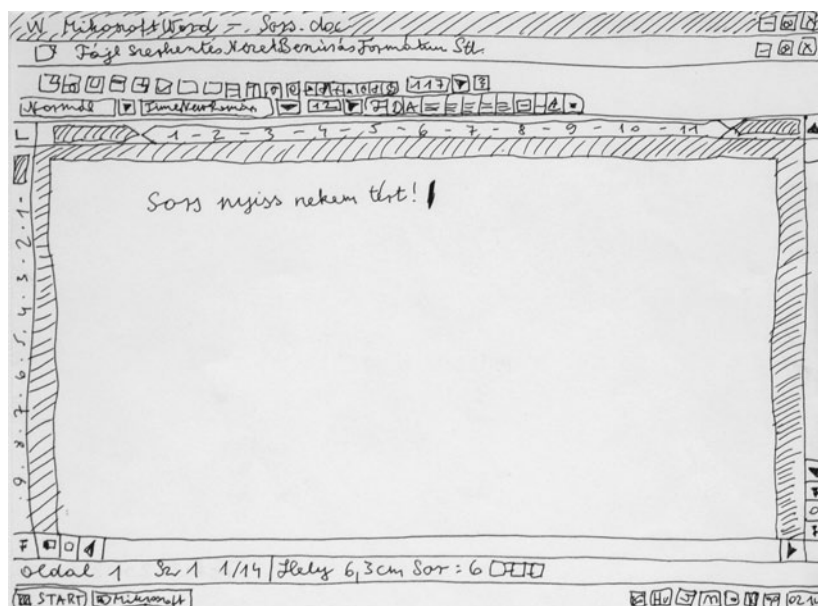 W Mikrosoft Word – Sors.doc
Fájl Szerkentés Nézet Beszúrás Formátum Stl.
117
Normál TimeNewRomán 12 F D A
L 1 - 2 - 3 - 4 - 5 - 6 - 7 - 8 - 9 - 10 - 11
Sors nyiss nekem tért!
1 2 3 4 5 6 7 8 9
oldal 1 Sz. 1 1/14 Hely 6,3cm Sor : 6
START Mikrosoft Hu